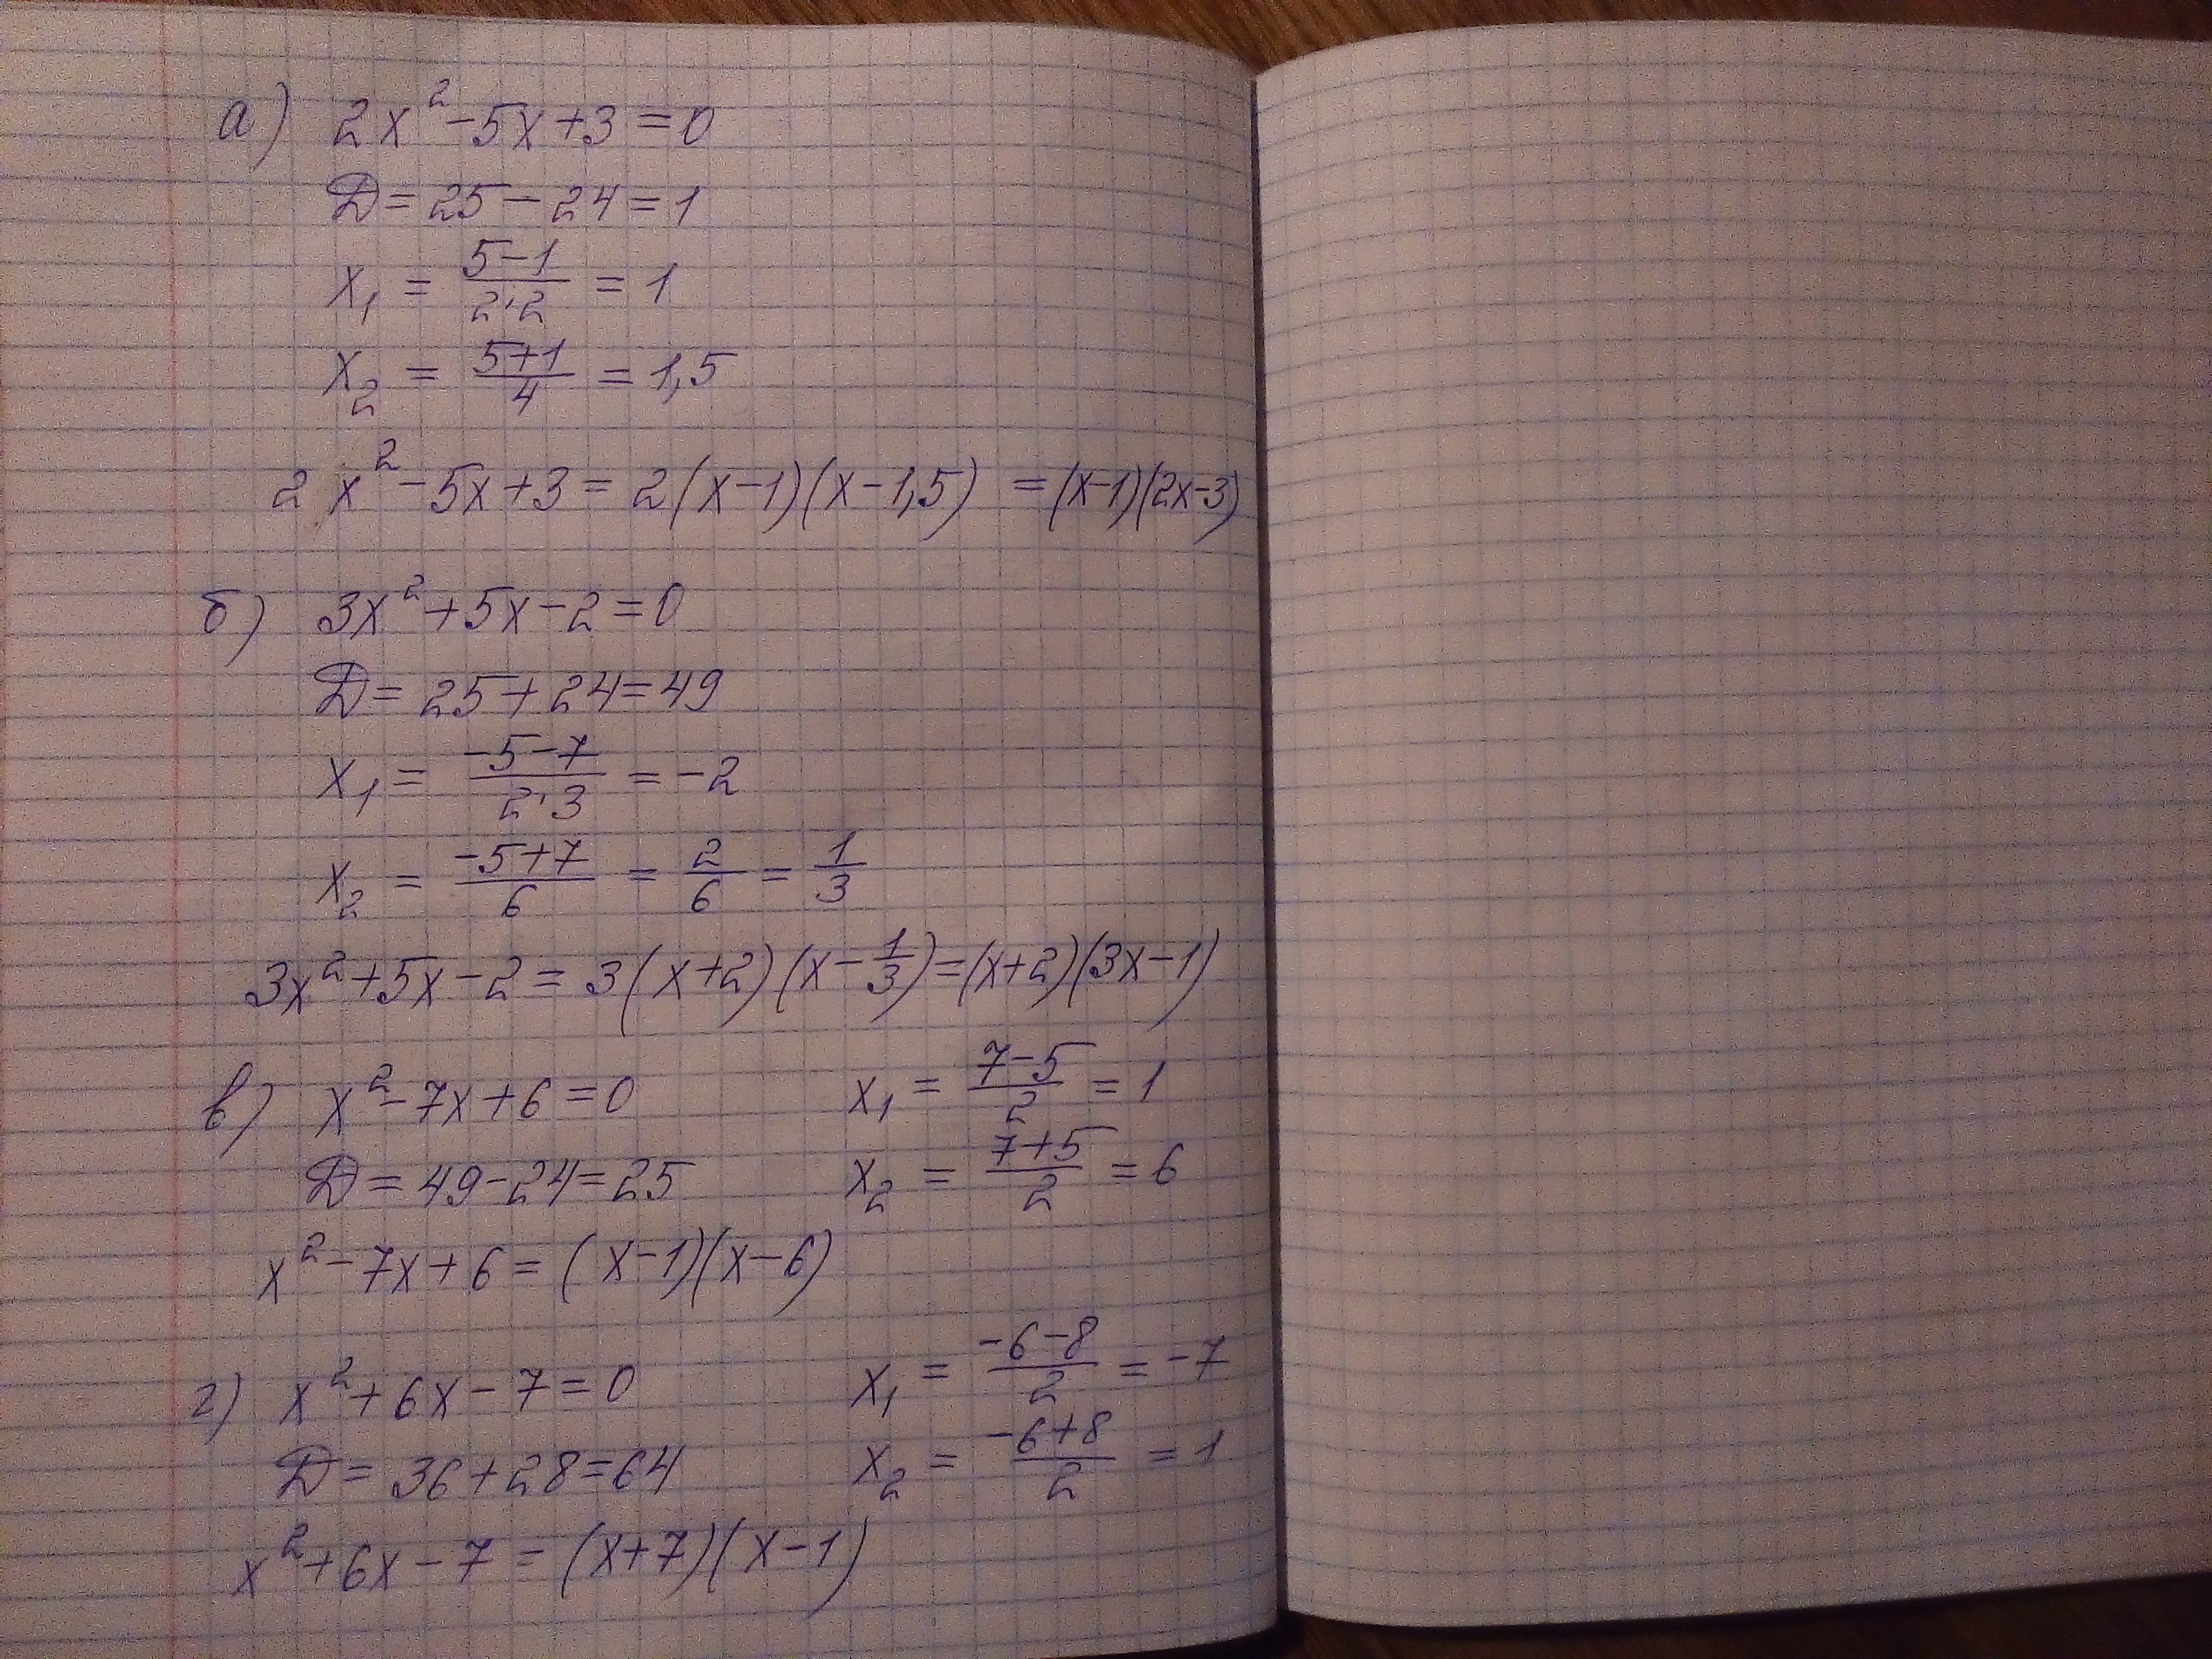 а) 2x² - 5x + 3 = 0
Д = 25 - 24 = 1
x₁ = (5-1)/(2·2) = 1
x₂ = (5+1)/4 = 1,5
2x² - 5x + 3 = 2(x-1)(x-1,5) = (x-1)(2x-3)
б) 3x² + 5x - 2 = 0
Д = 25 + 24 = 49
x₁ = (-5-7)/(2·3) = -2
x₂ = (-5+7)/6 = 2/6 = 1/3
3x² + 5x - 2 = 3(x+2)(x - 1/3) = (x+2)(3x-1)
в) x² - 7x + 6 = 0
Д = 49 - 24 = 25
x₁ = (7-5)/2 = 1
x₂ = (7+5)/2 = 6
x² - 7x + 6 = (x-1)(x-6)
г) x² + 6x - 7 = 0
Д = 36 + 28 = 64
x₁ = (-6-8)/2 = -7
x₂ = (-6+8)/2 = 1
x² + 6x - 7 = (x+7)(x-1)